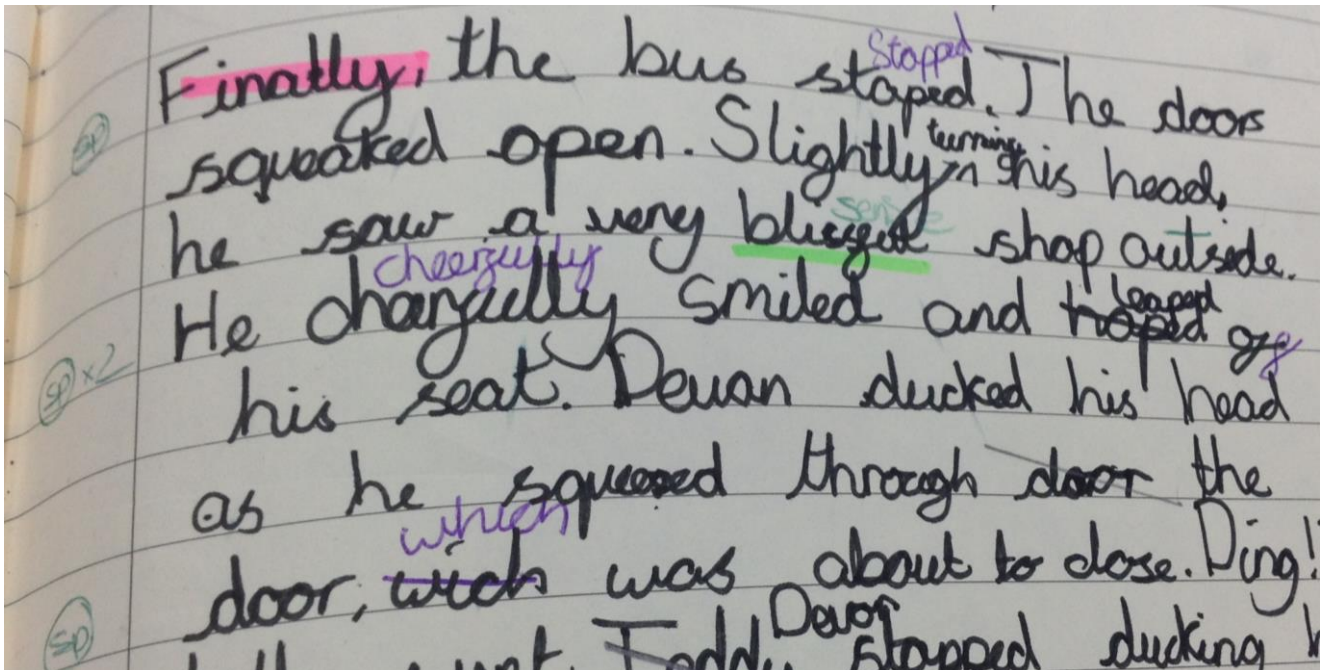 Finally, the bus staped. Stopped The doors
sp squeaked open. Slightly turning his head,
he saw a very sense shop outside.
cheerfully
He charfully smiled and leaped off
sp x2 his seat. Devan ducked his head
as he squeezed through door the
which
door, wich was about to close. Ding!
sp Toddy Devan stopped ducking